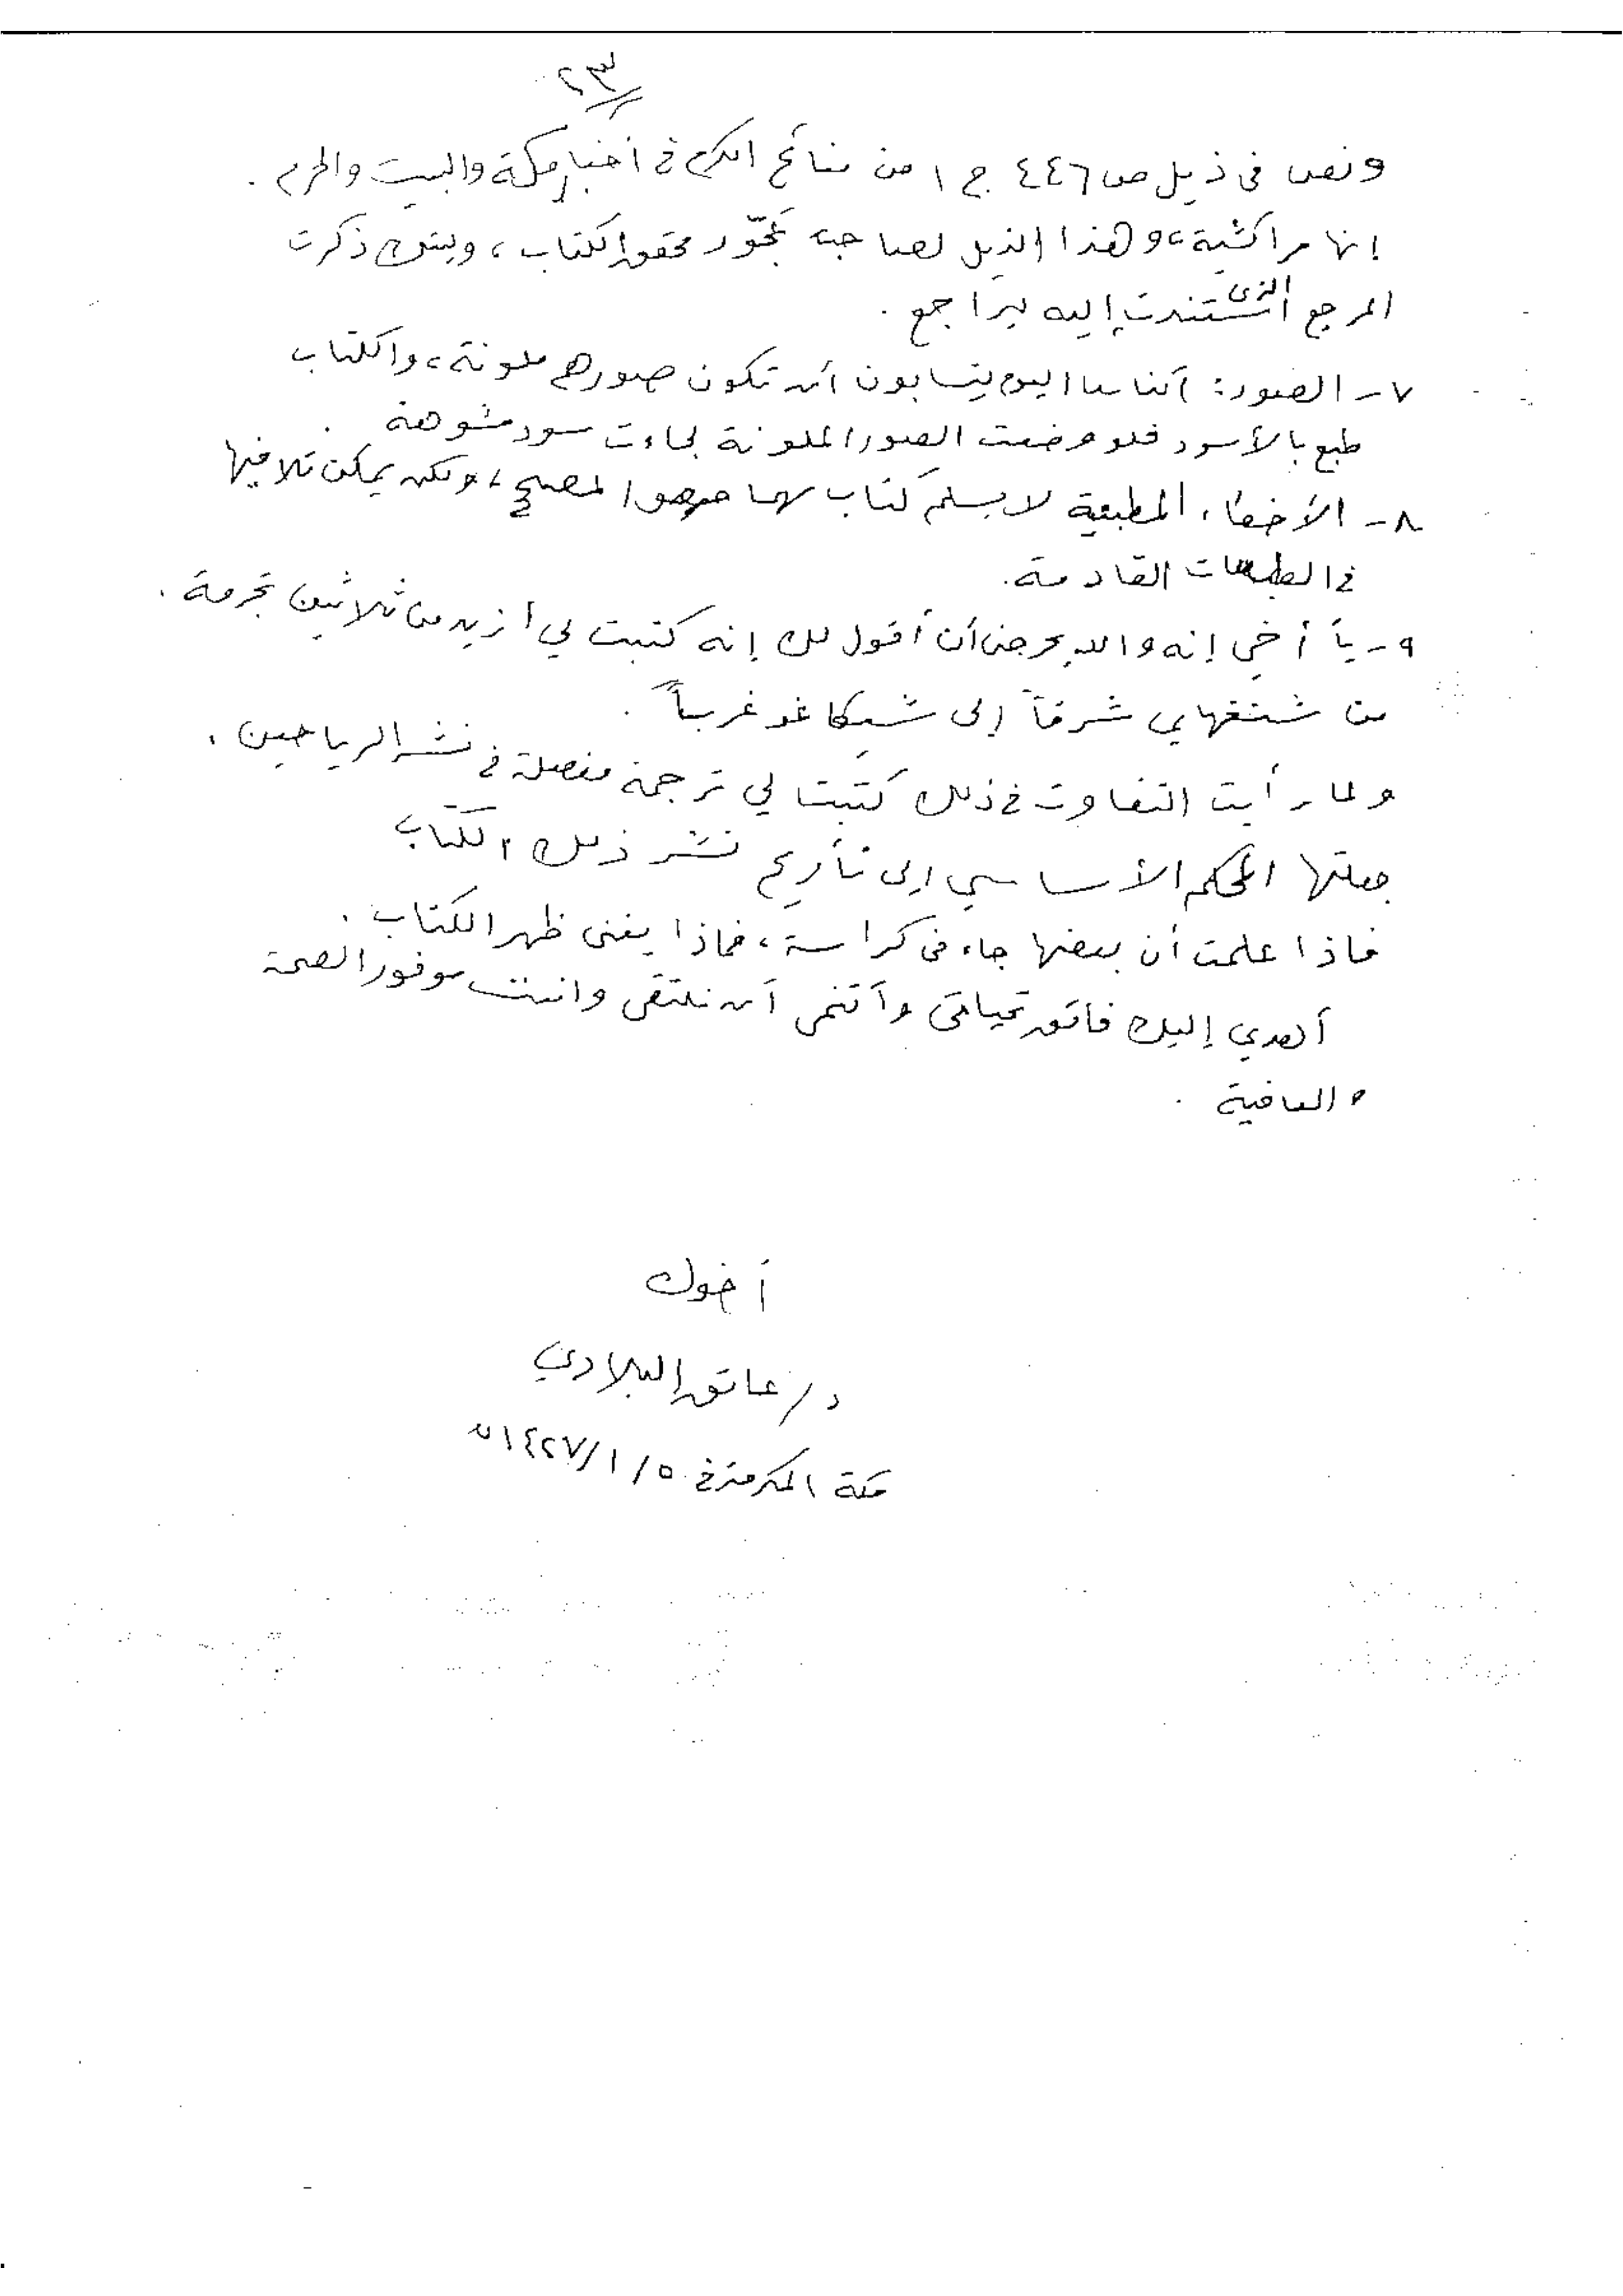 ٢٣
ونص في ذيل ص ٤٤٦ ج ١ من منائح الكرم في أخبار مكة والبيت والحرم .
إنها مراكشية، وهذا الذيل لصاحبه محقق الكتاب، وليتك ذكرت
المرجع الذي استندت إليه ليراجع .
٧ - الصور: الناس اليوم يتسابون أن تكون صورهم ملونة، والكتاب
طبع بالأسود فلو وضعت الصور الملونة لجاءت سود مشوهة .
٨ - الأخطاء المطبعية لا يسلم كتاب مهما حرص المصحح، ولكن يمكن تلافيها
في الطبعات القادمة.
٩ - يا أخي إنه والله يحرجني أن أقول لك إنه كتبت لي أزيد من ثلاثين ترجمة .
من شنغهاي شرقاً إلى شيكاغو غرباً .
ولما رأيت التفاوت في ذلك كتبت لي ترجمة مفصلة في نشر الرياحين .
جعلتها المحكم الأساسي إلى تأريخ نشر ذلك الكتاب
فاذا علمت أن بعضها جاء في كراسة، فماذا يغني ظهر الكتاب .
أهدي إليك فائق تحياتي وأتمنى أن نلتقي وانت موفور الصحة
والعافية .
أخوك
د/ عاتق البلادي
مكة المكرمة في ٥ / ١ /١٤٢٧ هـ